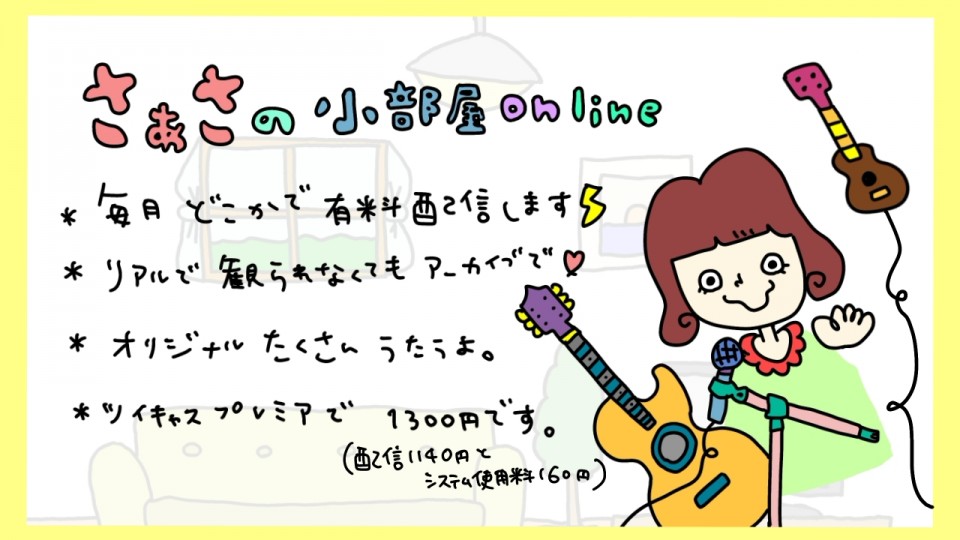 さあさの小部屋online
* 毎月どこかで有料配信します
* リアルで観られなくてもアーカイブで
* オリジナルたくさんうたうよ。
* ツイキャスプレミアで1300円です。
(配信1140円と
システム使用料160円)